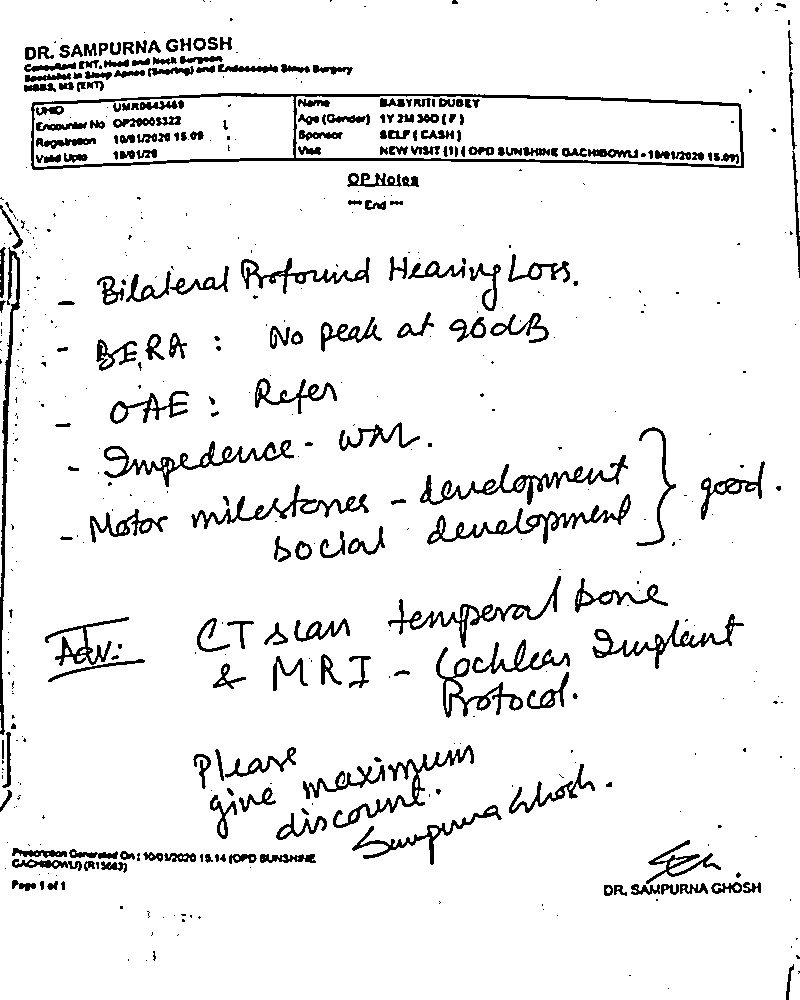 DR. SAMPURNA GHOSH
Consultant ENT, Head and Neck Surgeon
Specialist in Sleep Apnea (Snoring) and Endoscopic Sinus Surgery
MBBS, MS (ENT)
UHID UMR0643469 Name BABYRITI DUBEY
Encounter No OP20005322 Age (Gender) 1Y 2M 30D ( F )
Registration 10/01/2020 15.09 Sponsor SELF ( CASH )
Valid Upto 18/01/20 Visit NEW VISIT (1) ( OPD SUNSHINE GACHIBOWLI - 10/01/2020 15.09)
OP Notes
*** End ***
- Bilateral Profound Hearing Loss.
- BERA : No peak at 90dB
- OAE : Refer
- Impedence - WNL.
- Motor milestones - development
social development } good.
Adv: CT scan temperal bone
& MRI - Cochlear Implant
Protocol.
Please
give maximum
discount.
Sampurna Ghosh.
Prescription Generated On : 10/01/2020 15.14 (OPD SUNSHINE
GACHIBOWLI) (R15683)
Page 1 of 1
DR. SAMPURNA GHOSH